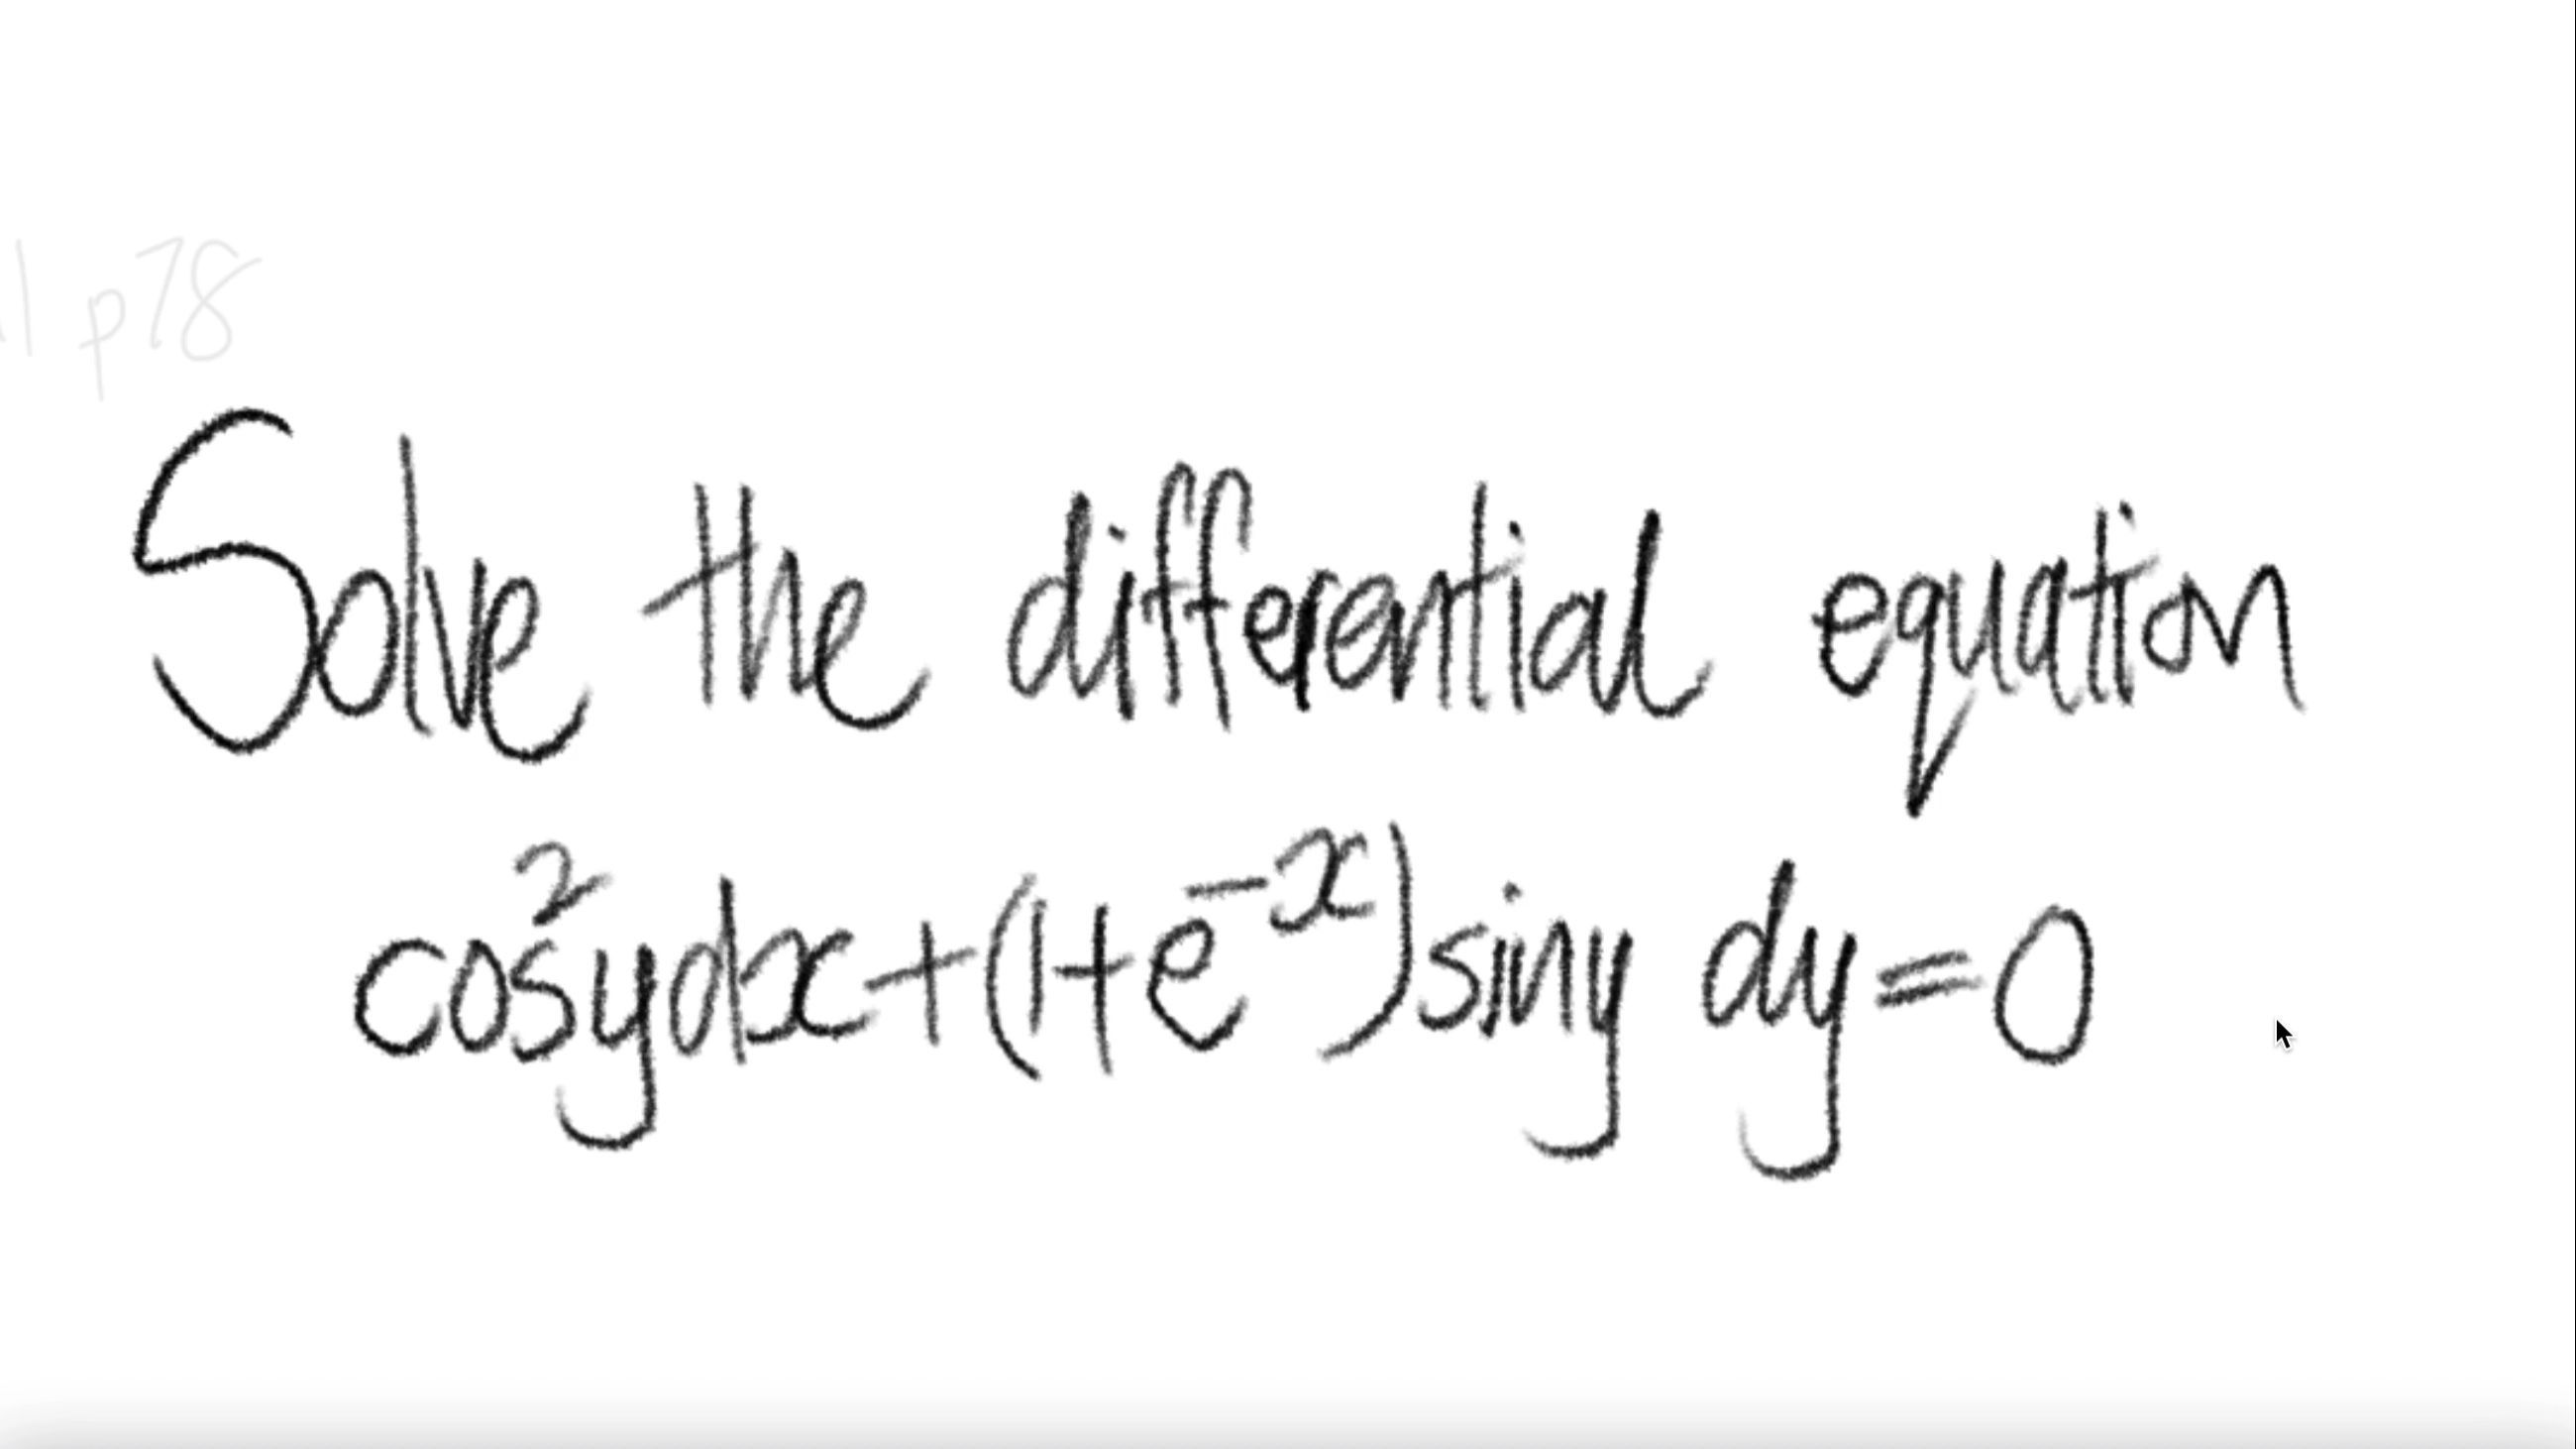 p78
Solve the differential equation
cos²ydx+(1+e⁻ˣ)siny dy=0